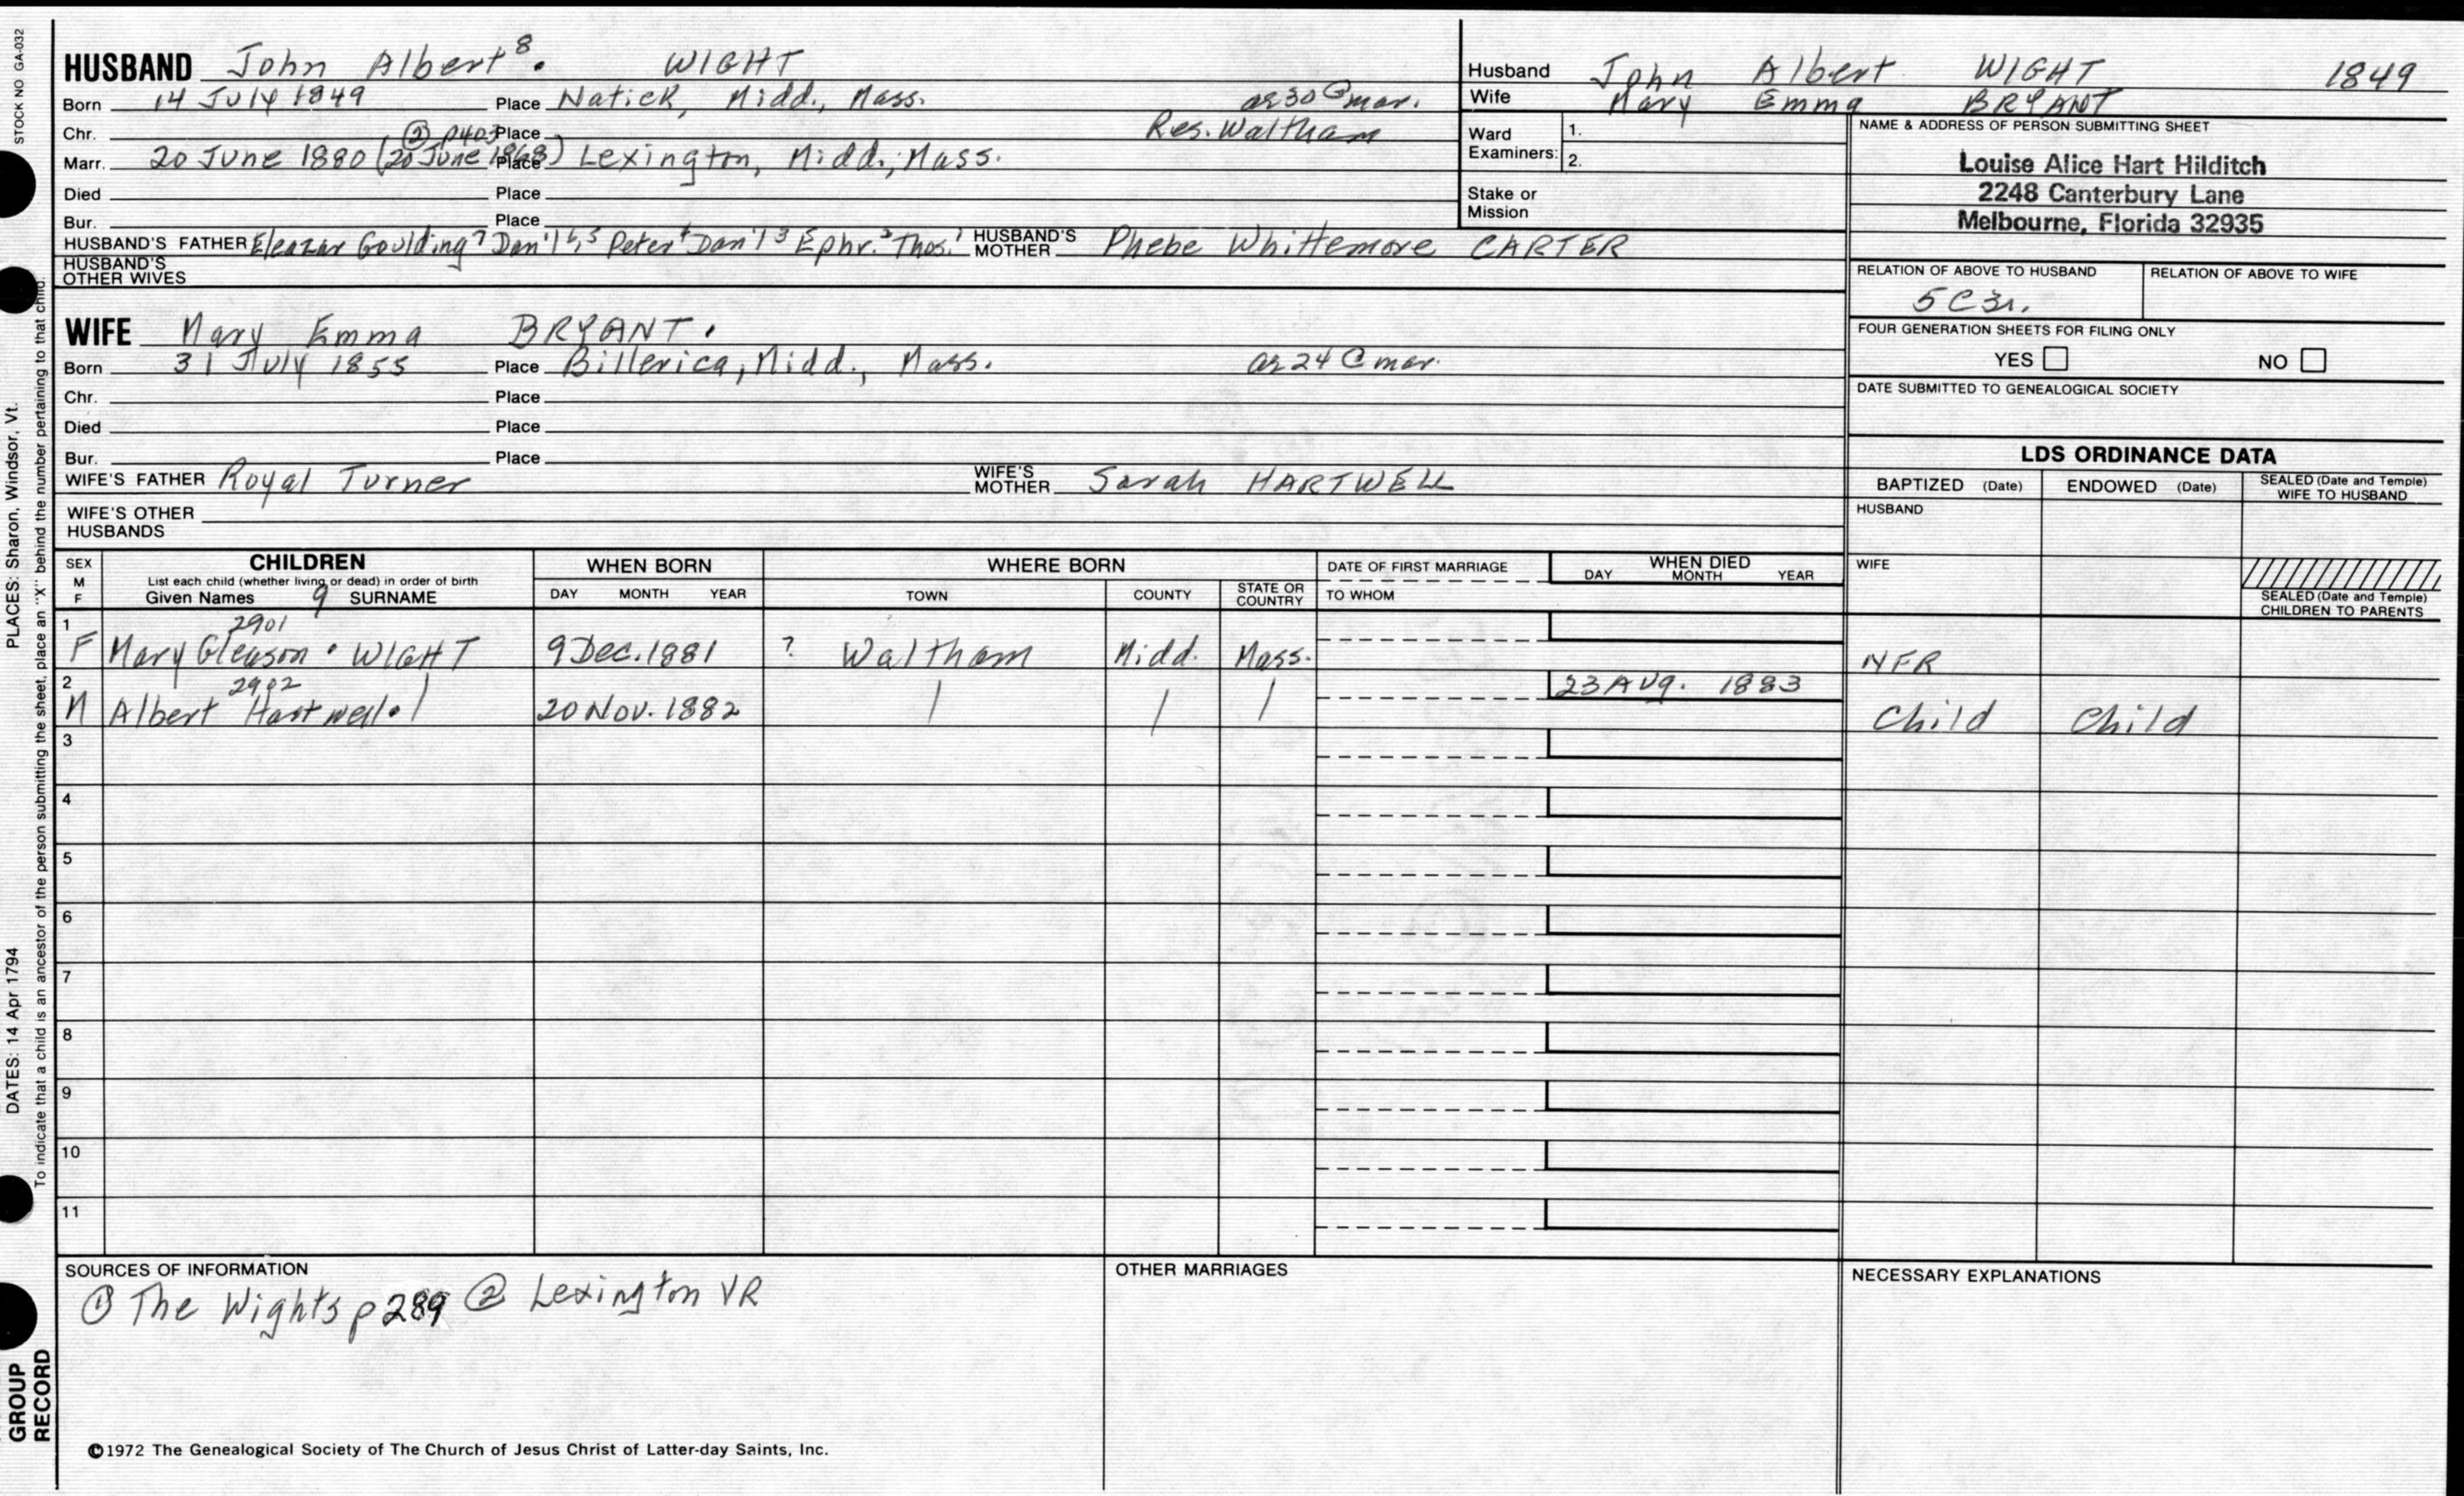 STOCK NO GA-032
PLACES: Sharon, Windsor, Vt.
DATES: 14 Apr 1794
To indicate that a child is an ancestor of the person submitting the sheet, place an "X" behind the number pertaining to that child.
GROUP
RECORD
HUSBAND John Albert 8 . WIGHT
Born 14 July 1849 Place Natick, Midd., Mass. ae 30 @ mar.
Chr. ② p403 Place Res. Waltham
Marr. 20 June 1880 (20 June 1868) Place Lexington, Midd., Mass.
Died Place
Bur. Place
HUSBAND'S FATHER Eleazar Goulding 7 Dan'l 6,5 Peter 4 Dan'l 3 Ephr. 2 Thos. 1 HUSBAND'S MOTHER Phebe Whittemore CARTER
HUSBAND'S
OTHER WIVES
WIFE Mary Emma BRYANT.
Born 31 July 1855 Place Billerica, Midd., Mass. ae 24 @ mar.
Chr. Place
Died Place
Bur. Place
WIFE'S FATHER Royal Turner WIFE'S MOTHER Sarah HARTWELL
WIFE'S OTHER
HUSBANDS
Husband John Albert WIGHT 1849
Wife Mary Emma BRYANT
Ward Examiners: 1.
2.
Stake or
Mission
NAME & ADDRESS OF PERSON SUBMITTING SHEET
Louise Alice Hart Hilditch
2248 Canterbury Lane
Melbourne, Florida 32935
RELATION OF ABOVE TO HUSBAND RELATION OF ABOVE TO WIFE
5C3r.
FOUR GENERATION SHEETS FOR FILING ONLY
YES NO
DATE SUBMITTED TO GENEALOGICAL SOCIETY
LDS ORDINANCE DATA
BAPTIZED (Date) ENDOWED (Date) SEALED (Date and Temple) WIFE TO HUSBAND
HUSBAND
WIFE
SEALED (Date and Temple)
CHILDREN TO PARENTS
SEX M F CHILDREN WHEN BORN WHERE BORN DATE OF FIRST MARRIAGE WHEN DIED
List each child (whether living or dead) in order of birth
Given Names 9 SURNAME DAY MONTH YEAR TOWN COUNTY STATE OR COUNTRY TO WHOM DAY MONTH YEAR
1 2901
F Mary Gleason . WIGHT 9 Dec. 1881 ? Waltham Midd. Mass. NFR
2 2902 23 Aug. 1883
M Albert Hartwell . | 20 Nov. 1882 | | | Child Child
3
4
5
6
7
8
9
10
11
SOURCES OF INFORMATION
① The Wights p 289 ② Lexington VR
OTHER MARRIAGES
NECESSARY EXPLANATIONS
©1972 The Genealogical Society of The Church of Jesus Christ of Latter-day Saints, Inc.